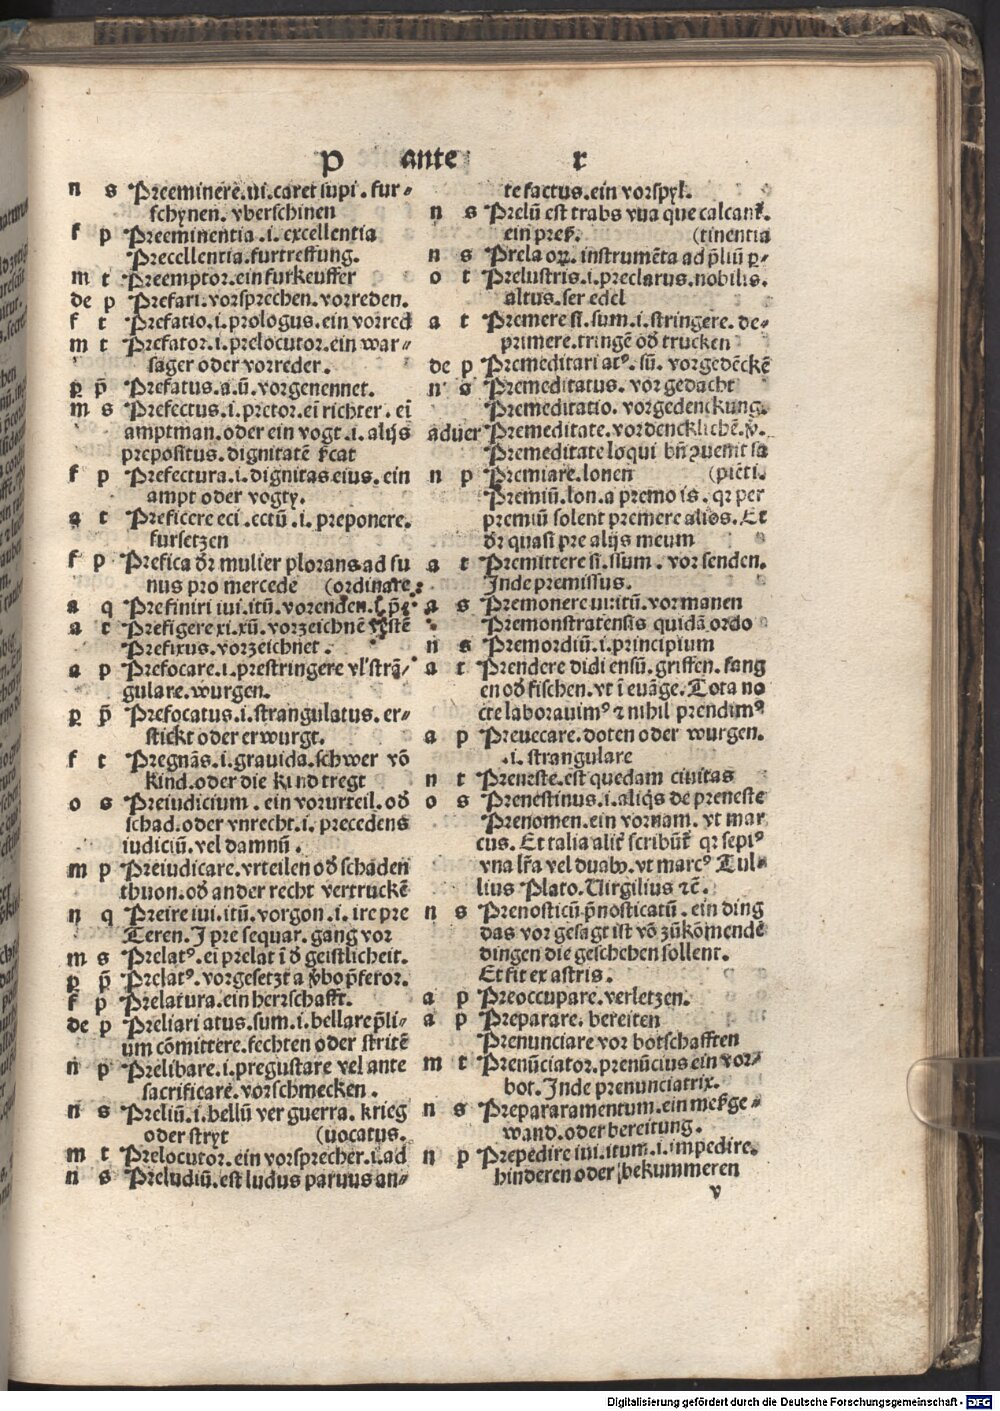 p ante r
n s Preeminerē.ui.caret supi.fur⸗
schynen. vberschinen
f p Preeminentia.i.excellentia
Precellentia.furtreffung.
m t Preemptor.ein furkeuffer
de p Prefari.vorsprechen.vorreden.
f t Prefatio.i.prologus.ein vorred
m t Prefator.i.prelocutor.ein war⸗
sager oder vorreder.
p p̄ Prefatus.a.ū.vorgenennet.
m s Prefectus.i.pretor.eī richter.eī
amptman.oder ein vogt.i.alijs
prepositus.dignitatē
f p Prefectura.i.dignitas eius.ein
ampt oder vogty.
a t Preficere eci.ectū.i.preponere.
fursetzen
f p Prefica dr mulier plorans ad fu
nus pro mercede (ordinare
a q Prefiniri iui.itū.vorenden.
a t Prefigere xi.xū.vorzeichnē
Prefixus.vorzeichnet.
a p Prefocare.i.prestringere vl' strā⸗
gulare.wurgen.
p p̄ Prefocatus.i.strangulatus.er⸗
stickt oder erwurgt.
f t Pregnās.i.grauida.schwer vō
kind.oder die kind tregt
o s Preiudicium.ein vorurteil.od
schad.oder vnrecht.i.precedens
iudiciū.vel damnū.
m p Preiudicare.vrteilen od schaden
thuon.od ander recht vertruckē
n q Preire iui.itū.vorgon.i.ire pre
Teren.I pre sequar.gang vor
m s Prelat⁹.ei prelat ī d geistlicheit.
p p̄ Prelat⁹.vorgesetzt a vbo p̄feror.
f p Prelatura.ein herrschafft.
de p Preliari atus.sum.i.bellare p̄li⸗
um cōmittere.fechten oder stritē
n p Prelibare.i.pregustare vel ante
sacrificare.vorschmecken.
n s Preliū.i.bellū ver guerra.krieg
oder stryt (uocatus.
m t Prelocutor.ein vorsprecher.i.ad
n s Preludiū.est ludus paruus an⸗
te factus.ein vorspyl.
n s Prelū est trabs vua que calcant.
ein pres. (tinentia
n s Prela orꝝ.instrumēta ad p̄liū p⸗
o t Prelustris.i.preclarus.nobilis.
altus.ser edel
a t Premere si.sum.i.stringere.de⸗
primere.tringē od trucken
de p Premeditari at⁹.sū.vorgedēckē
n s Premeditatus.vor gedacht
Premeditatio.vorgedenckung.
aduer Premeditate.vordencklichē.
Premeditate loqui bn ꝯuenit sa
n p Premiare.lonen (piēti.
Premiū.lon.a premo is.qr per
premiū solent premere alios.Et
dr quasi pre alijs meum
a t Premittere si.ssum.vor senden.
Inde premissus.
a s Premonere ui.itū.vor manen
Premonstratensis quidā ordo
n s Premordiū.i.principium
a t Prendere didi ensū.griffen.fang
en od fischen.vt ī euāge.Tota no
cte laborauim⁹ ⁊ nihil prendim⁹
a p Preuecare.doten oder wurgen.
.i.strangulare
n t Preneste.est quedam ciuitas
o s Prenestinus.i.aliqs de preneste
Prenomen.ein vornam.vt mar
cus.Et talia alit scribūt qr sepi⁹
vna lra vel duab⁹.vt marc⁹ Tul⸗
lius Plato.Uirgilius ⁊c̄.
n s Prenosticū p̄nosticatū.ein ding
das vor gesagt ist vō zūkōmendē
dingen die geschehen sollent.
Et fit ex astris.
a p Preoccupare.verletzen.
a p Preparare.bereiten
Prenunciare vor botschafften
m t Prenūciator.prenūcius ein vor⸗
bot.Inde prenunciatrix.
n s Prepararamentum.ein mesge⸗
wand.oder bereitung.
n p Prepedire iui.itum.i.impedire.
hinderen oder bekummeren
v
Digitalisierung gefördert durch die Deutsche Forschungsgemeinschaft - DFG